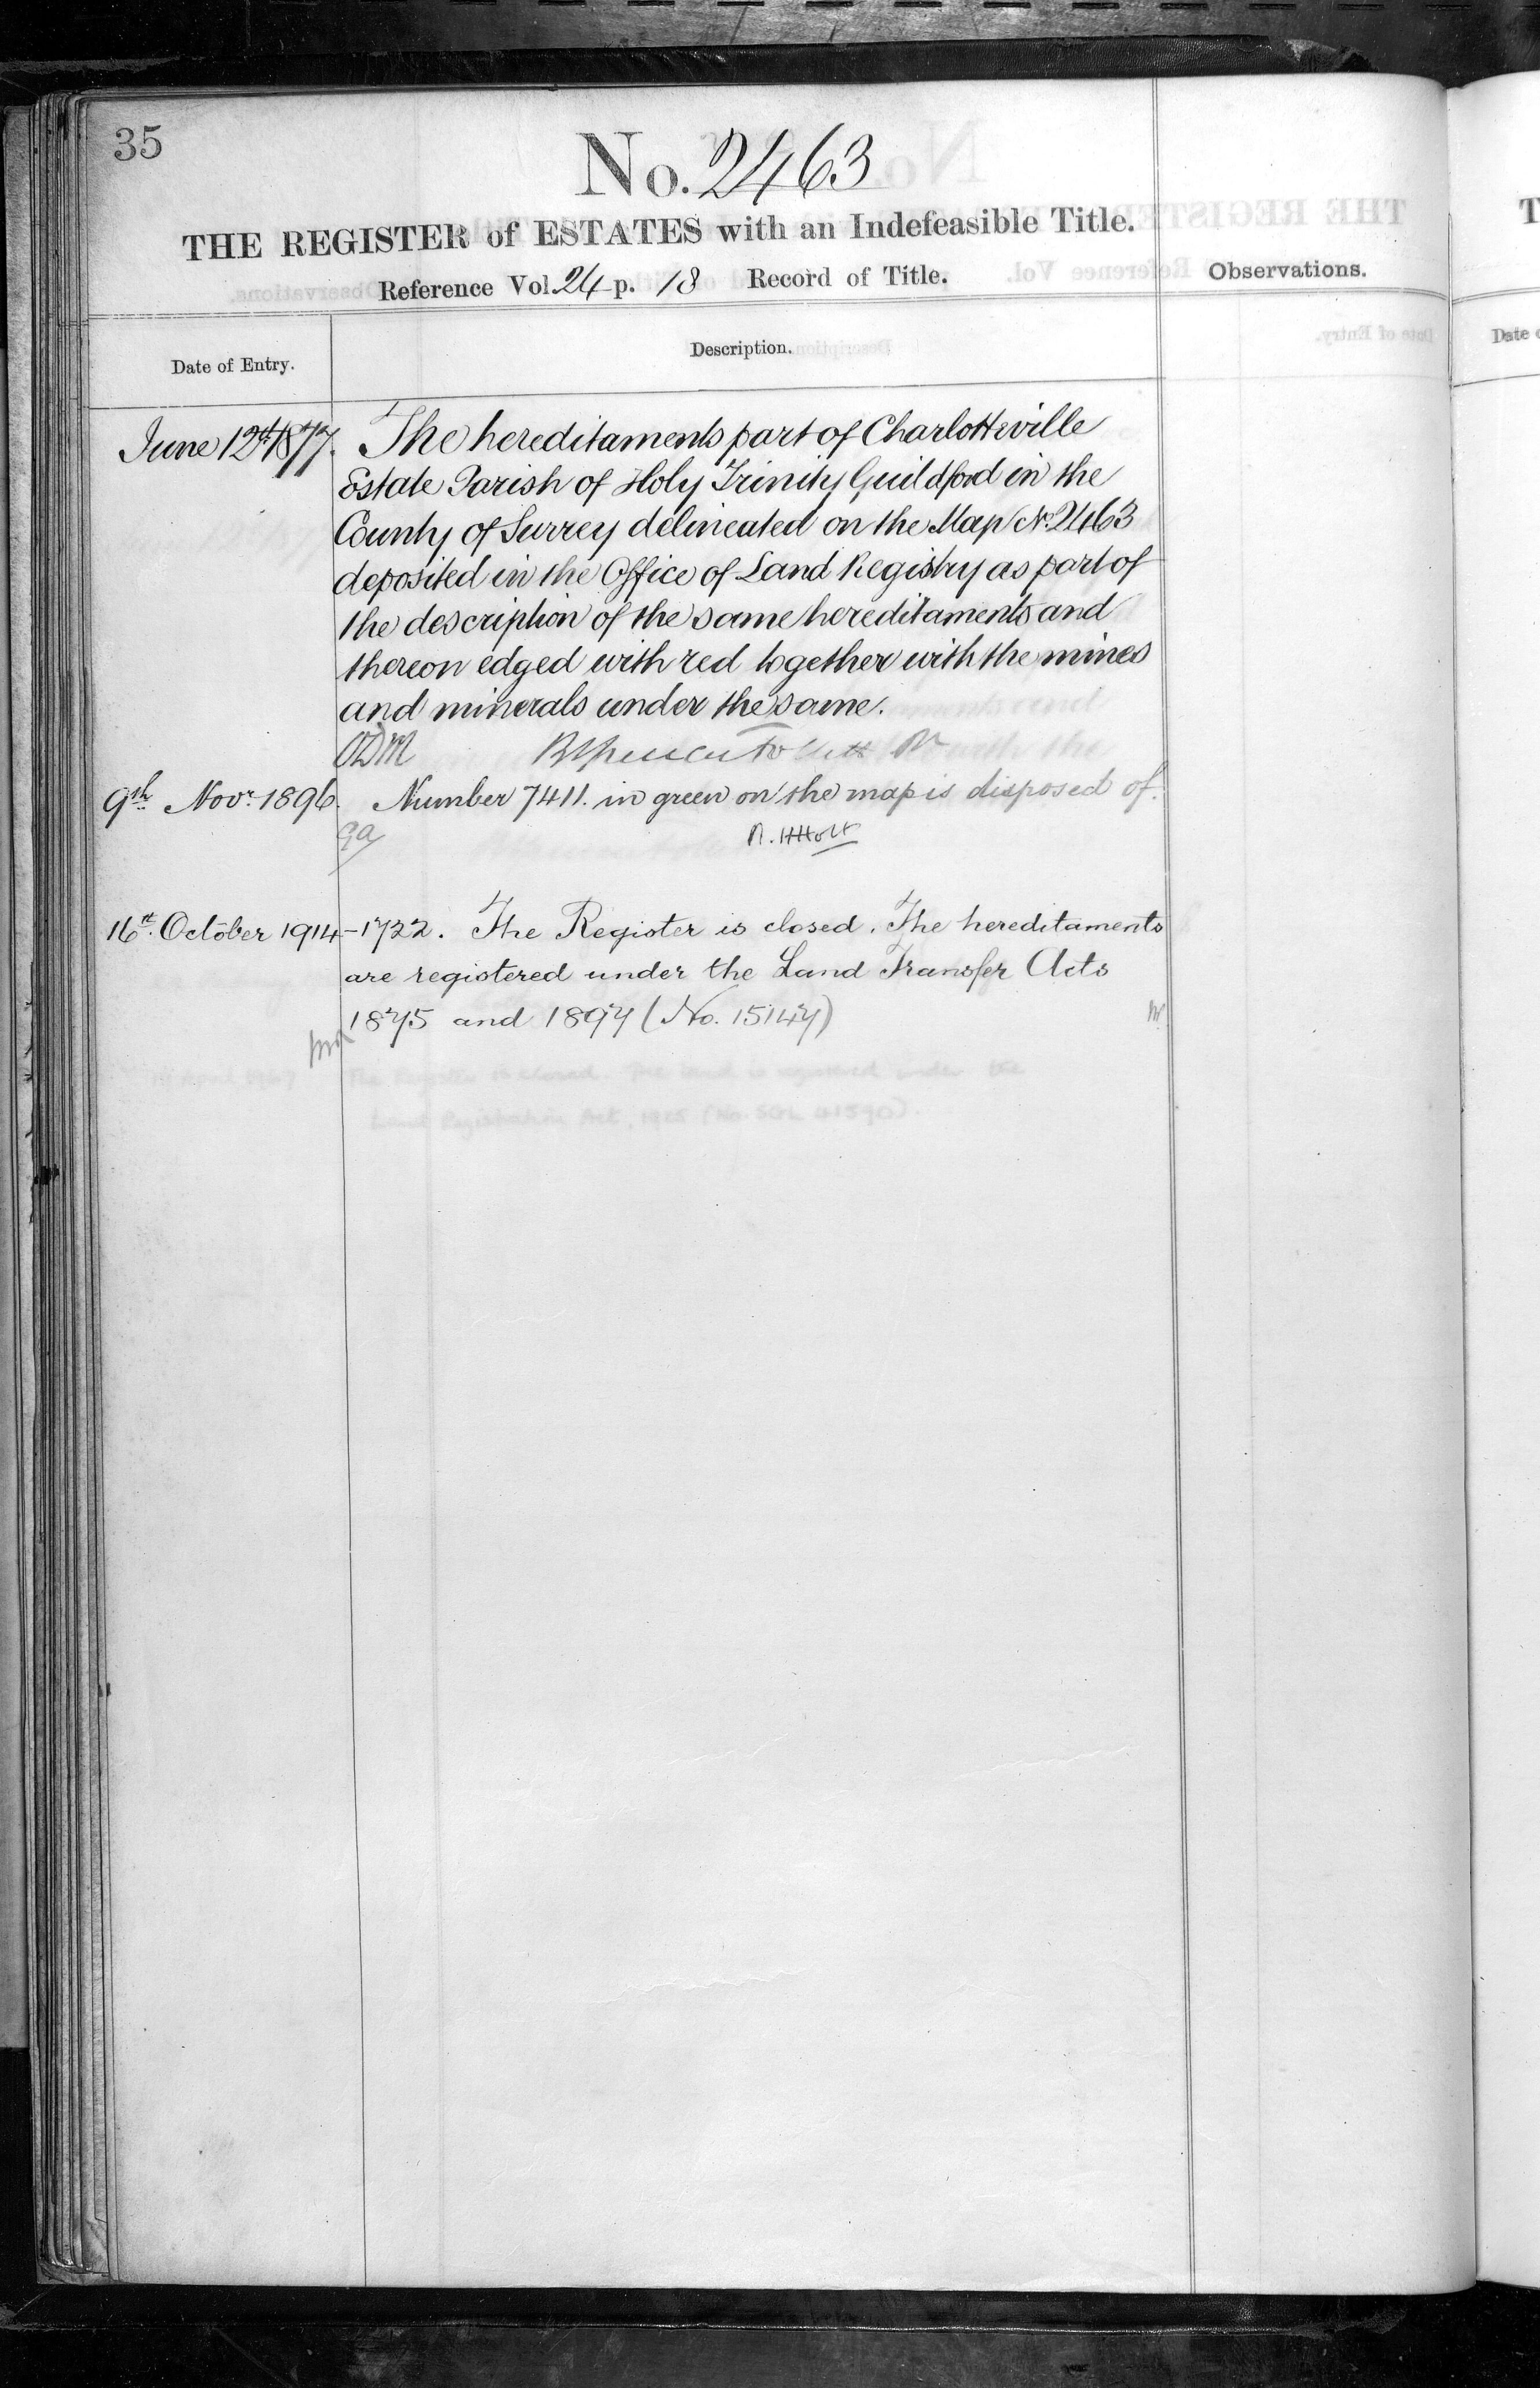 35
No. 2463
THE REGISTER of ESTATES with an Indefeasible Title.
Reference Vol. 24 p. 18 Record of Title.
Observations.
Date of Entry.
Description.
June 12th 1877. The hereditaments part of Charlotteville
Estate Parish of Holy Trinity Guildford in the
County of Surrey delineated on the Map No. 2463
deposited in the Office of Land Registry as part of
the description of the same hereditaments and
thereon edged with red together with the mines
and minerals under the same.
9th Novr. 1896. Number 7411. in green on the map is disposed of.
R. H Holt
16th October 1914 - 1722. The Register is closed. The hereditaments
are registered under the Land Transfer Acts
1875 and 1897 (No. 15147)
The Register is closed. The land is registered under the
Land Registration Act, 1925 (No. SGL 41590).